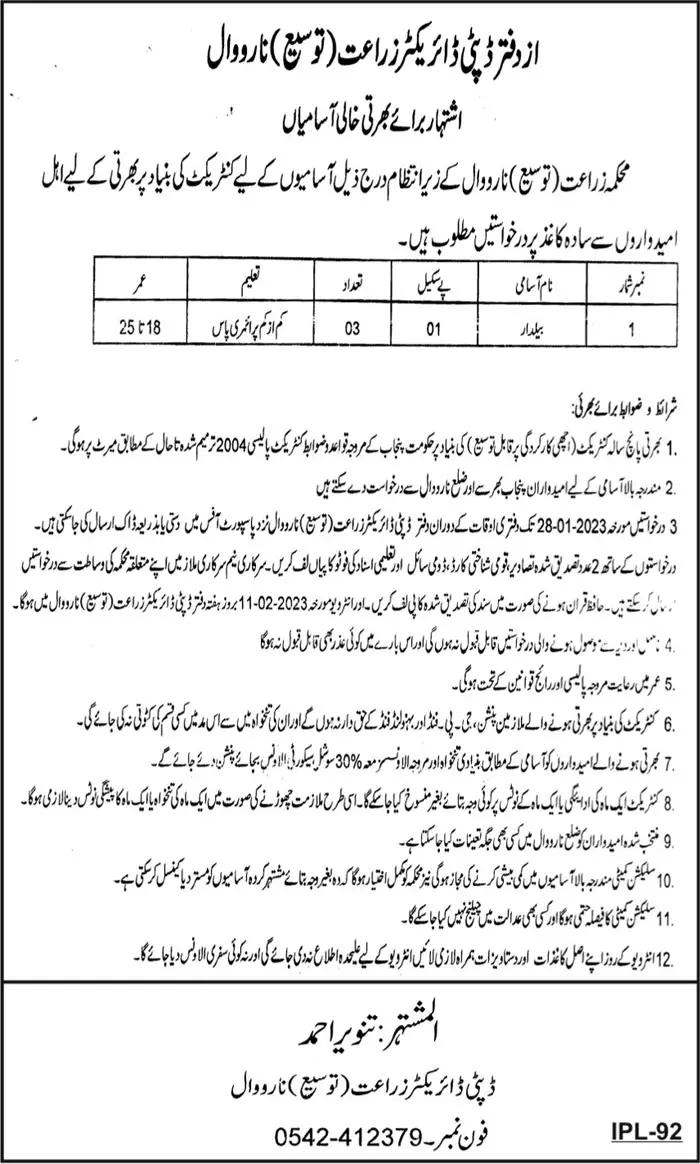 از دفتر ڈپٹی ڈائریکٹر زراعت (توسیع) نارووال
اشتہار برائے بھرتی خالی آسامیاں
محکمہ زراعت (توسیع) نارووال کے زیر انتظام درج ذیل آسامیوں کے لیے کنٹریکٹ کی بنیاد پر بھرتی کے لیے اہل
امیدواروں سے سادہ کاغذ پر درخواستیں مطلوب ہیں۔
نمبر شمار نام آسامی پے سکیل تعداد تعلیم عمر
1 بیلدار 01 03 کم از کم پرائمری پاس 18 تا 25
شرائط و ضوابط برائے بھرتی:
1. بھرتی پانچ سالہ کنٹریکٹ (اچھی کارکردگی پر قابل توسیع) کی بنیاد پر حکومت پنجاب کے مروجہ قواعد و ضوابط کنٹریکٹ پالیسی 2004 ترمیم شدہ تا حال کے مطابق میرٹ پر ہوگی۔
2 مندرجہ بالا آسامی کے لیے امیدواران پنجاب بھر سے اور ضلع نارووال سے درخواست دے سکتے ہیں
3 درخواستیں مورخہ 28-01-2023 تک دفتری اوقات کے دوران دفتر ڈپٹی ڈائریکٹر زراعت (توسیع) نارووال نزد پاسپورٹ آفس میں دستی یا بذریعہ ڈاک ارسال کی جا سکتی ہیں۔
درخواستوں کے ساتھ 2 عدد تصدیق شدہ تصاویر، قومی شناختی کارڈ، ڈومیسائل اور تعلیمی اسناد کی فوٹو کاپیاں لف کریں۔ سرکاری نیم سرکاری ملازمین اپنے متعلقہ محکمہ کی وساطت سے درخواستیں
ارسال کر سکتے ہیں۔ حافظ قرآن ہونے کی صورت میں سند کی تصدیق شدہ کاپی لف کریں۔ اور انٹرویو مورخہ 11-02-2023 بروز ہفتہ دفتر ڈپٹی ڈائریکٹر زراعت (توسیع) نارووال میں ہوگا۔
4 اور دیر سے موصول ہونے والی درخواستیں قابل قبول نہ ہوں گی اور اس بارے میں کوئی عذر بھی قابل قبول نہ ہوگا
5 عمر میں رعایت مروجہ پالیسی اور رائج قوانین کے تحت ہوگی۔
6 کنٹریکٹ کی بنیاد پر بھرتی ہونے والے ملازمین پنشن، جی۔ پی۔ فنڈ اور بہبود فنڈ کے حق دار نہ ہوں گے اور ان کی تنخواہ میں سے اس مد میں کسی قسم کی کٹوتی نہ کی جائے گی۔
7 بھرتی ہونے والے امیدواروں کو آسامی کے مطابق بنیادی تنخواہ اور مروجہ الاونسز معہ 30% سوشل سیکورٹی الاونس بجائے پنشن دئے جائے گے۔
8 کنٹریکٹ ایک ماہ کی ادائیگی یا ایک ماہ کے نوٹس پر کوئی وجہ بتائے بغیر منسوخ کیا جا سکے گا۔ اسی طرح ملازمت چھوڑنے کی صورت میں ایک ماہ کی تنخواہ یا ایک ماہ کا پیشگی نوٹس دینا لازمی ہوگا۔
9 منتخب شدہ امیدواران کو ضلع نارووال میں کسی بھی جگہ تعینات کیا جا سکتا ہے۔
10 سلیکشن کمیٹی مندرجہ بالا آسامیوں میں کمی بیشی کرنے کی مجاز ہوگی نیز محکمہ کو مکمل اختیار ہوگا کہ وہ بغیر وجہ بتائے مشتہر کردہ آسامیوں کو مسترد یا کینسل کر سکتی ہے۔
11 سلیکشن کمیٹی کا فیصلہ حتمی ہوگا اور کسی بھی عدالت میں چیلنج نہیں کیا جا سکے گا۔
12 انٹرویو کے روز اپنے اصل کاغذات اور دستاویزات ہمراہ لازمی لائیں انٹرویو کے لیے علیحدہ اطلاع نہ دی جائے گی اور نہ کوئی سفری الاونس دیا جائے گا۔
المشتہر: تنویر احمد
ڈپٹی ڈائریکٹر زراعت (توسیع) نارووال
فون نمبر۔ 0542-412379
IPL-92